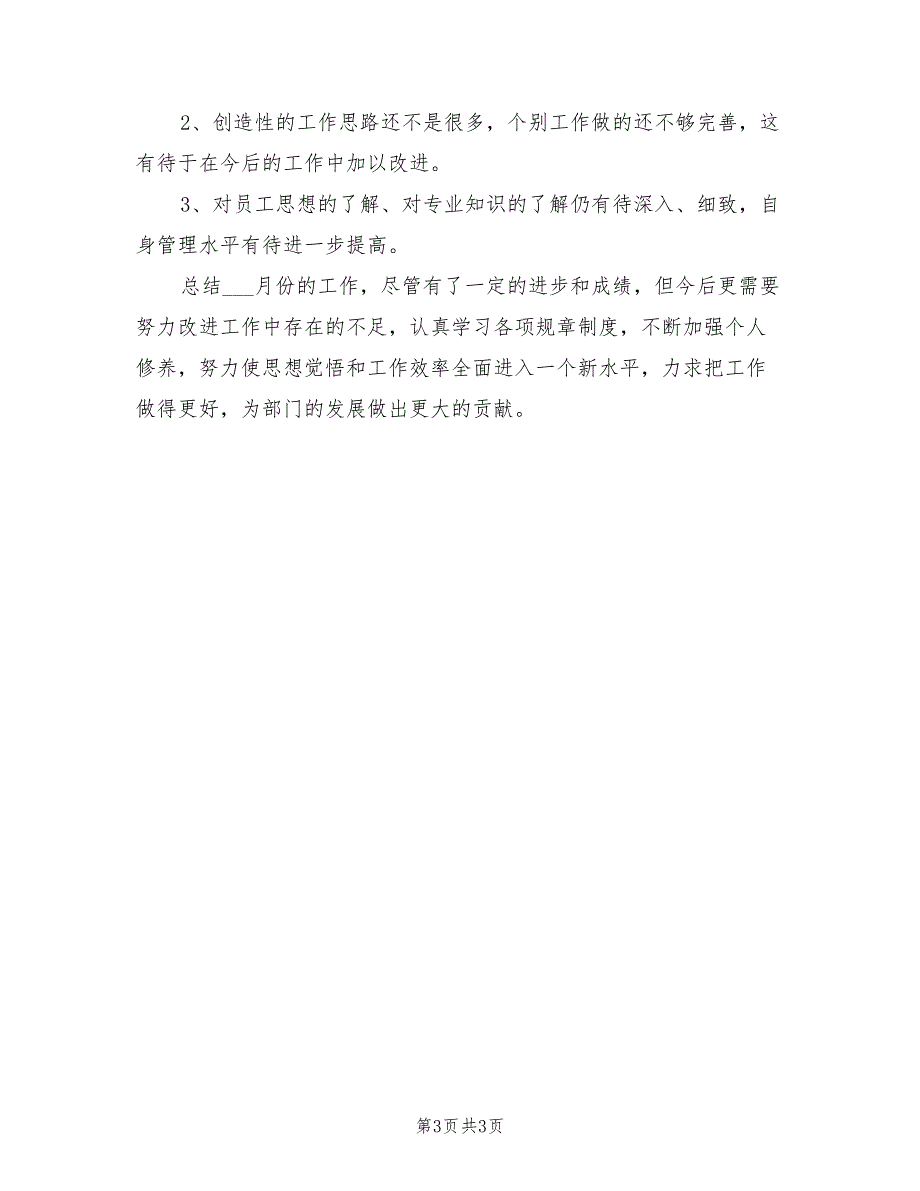 2、创造性的工作思路还不是很多，个别工作做的还不够完善，这
有待于在今后的工作中加以改进。
3、对员工思想的了解、对专业知识的了解仍有待深入、细致，自
身管理水平有待进一步提高。
总结___月份的工作，尽管有了一定的进步和成绩，但今后更需要
努力改进工作中存在的不足，认真学习各项规章制度，不断加强个人
修养，努力使思想觉悟和工作效率全面进入一个新水平，力求把工作
做得更好，为部门的发展做出更大的贡献。
第3页 共3页